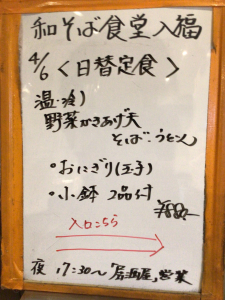 和そば食堂入福
4/6 <日替定食>
温・冷)
野菜かきあげ天
そば・うどん
・おにぎり(玉子)
・小鉢 2品付
¥880-
入口こちら
夜 17:30〜「居酒屋」営業